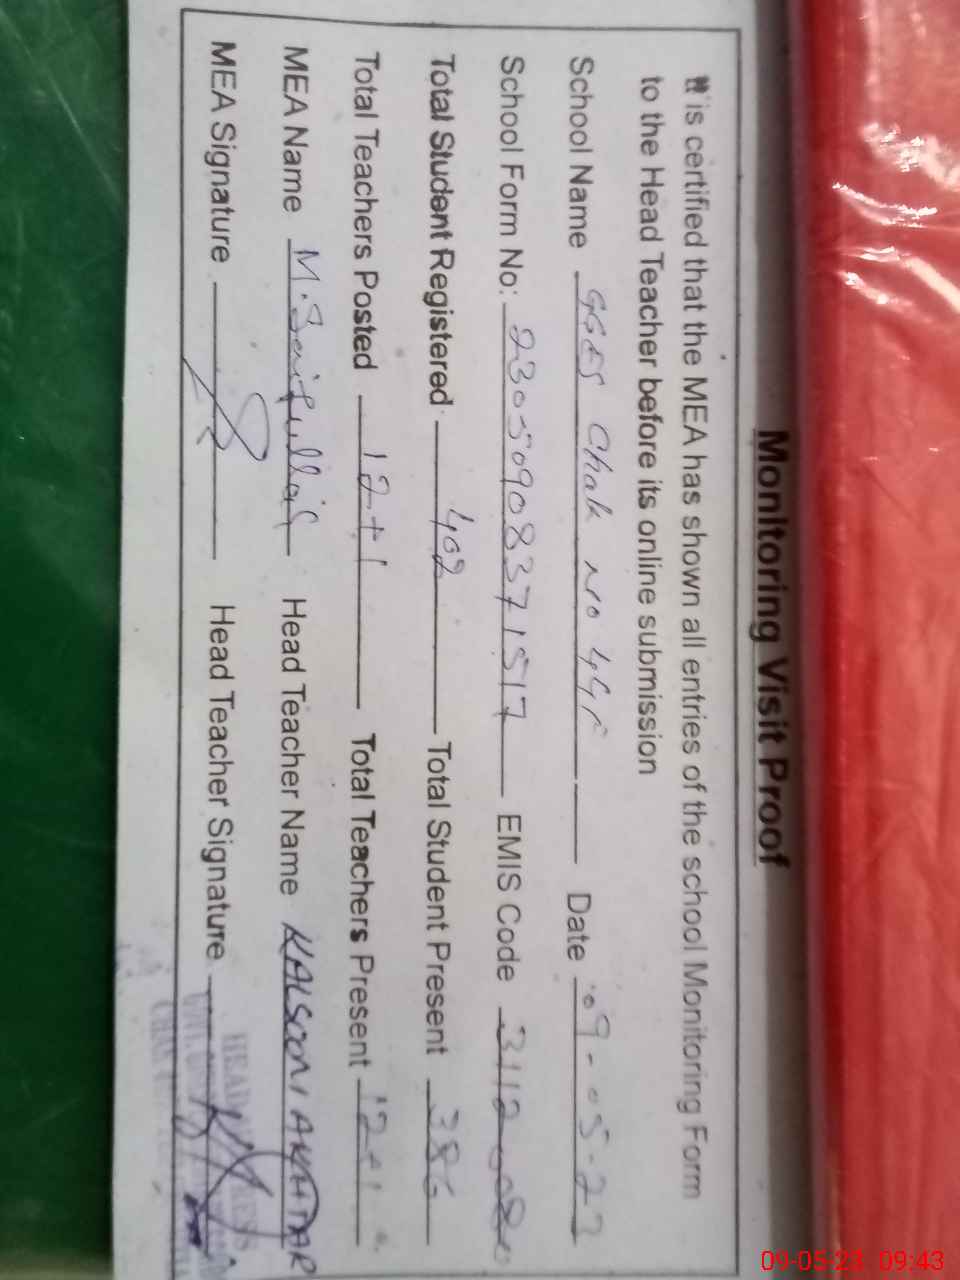 Monitoring Visit Proof
It is certified that the MEA has shown all entries of the school Monitoring Form
to the Head Teacher before its online submission
School Name GGES Chak No 44F Date 09-05-23
School Form No: 23050908371517 EMIS Code
Total Student Registered 402 Total Student Present 386
Total Teachers Posted 12+1 Total Teachers Present 12+1
MEA Name M.Saifullah Head Teacher Name KALSOOM AKHTAR
MEA Signature Head Teacher Signature
HEADMISTRESS
09-05-23 09:43